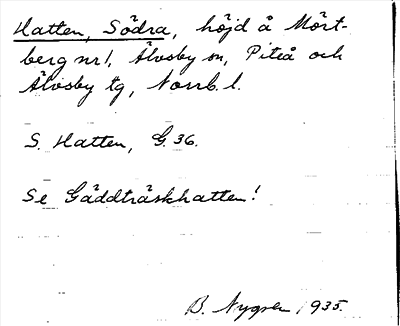 Hatten, Södra, höjd å Mört-
berg nr 1, Älvsby sn, Piteå och
Älvsby tg, Norrb. l.
S. Hatten, G. 36.
Se Gäddträskhatten!
B. Nygren 1935.